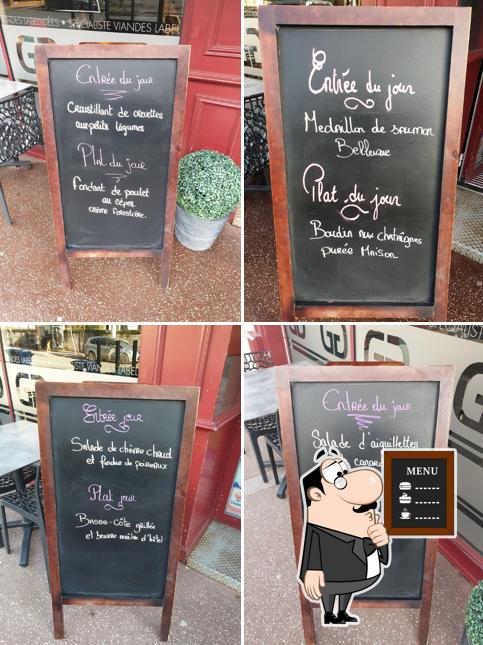 SPÉCIALISTE VIANDES LABEL
Entrée du jour
Croustillant de crevettes
aux petits légumes
Plat du jour
Fondant de poulet
au cèpes
crème forestière.
Entrée du jour
Medaillon de saumon
Bellevue
Plat du jour
Boudin aux chataîgnes
purée Maison
STE VIANDES LABEL
Entrée jour
Salade de chèvre chaud
et fondue de poireaux
Plat jour
Basse-côte grillée
et beurre maître d'hôtel
Entrée du jour
Salade d'aiguillettes
canard
MENU